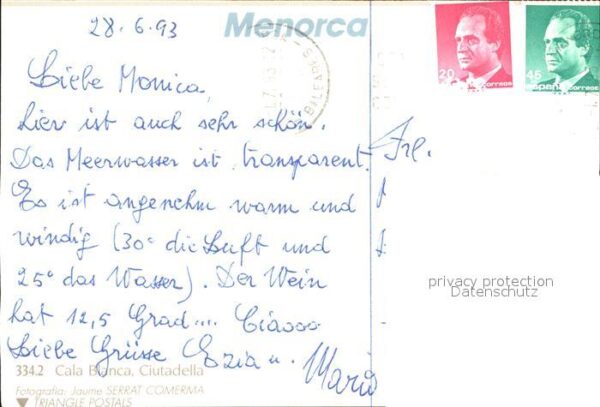 28.6.93
Menorca
BALEARES
20
España correos
45
España correos
Liebe Monica,
hier ist auch sehr schön.
Das Meerwasser ist transparent.
Es ist angenehm warm und
windig (30° die Luft und
25° das Wasser). Der Wein
hat 12,5 Grad.... Ciaooo
Liebe Grüsse Ezia u. Mario
Frl.
privacy protection
Datenschutz
334.2 Cala Blanca, Ciutadella
Fotografia: Jaume SERRAT COMERMA
TRIANGLE POSTALS